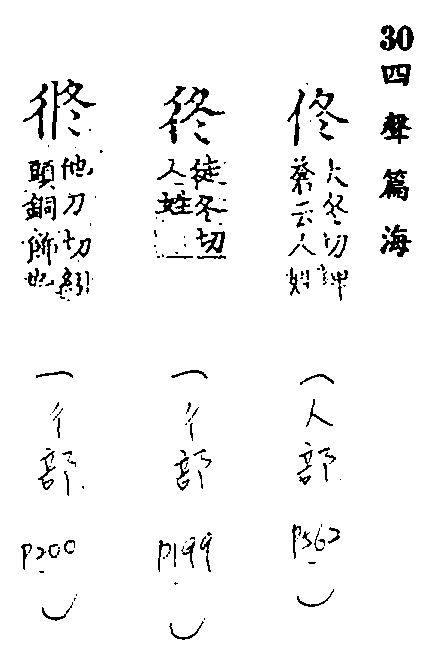 30 四聲篇海
佟
大冬切埤
蒼云人姓
(人部 P562)
徒冬切
人姓
(彳部 P199)
他刀切紖
頭銅飾也
(彳部 P200)